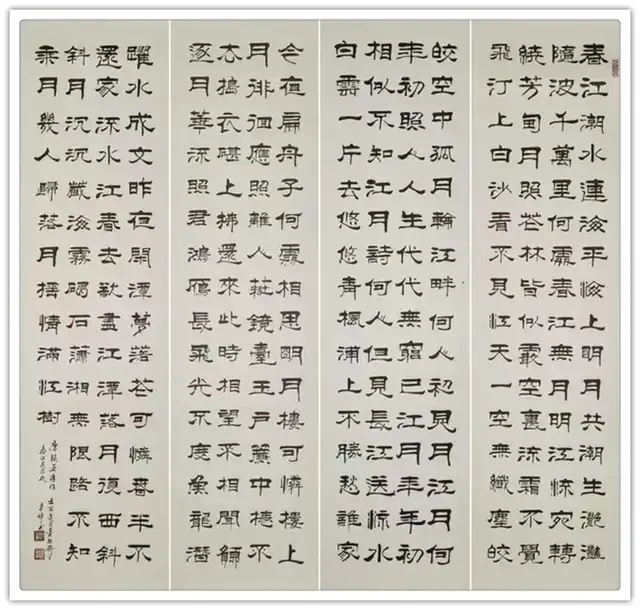 春江潮水連海平海上明月共潮生灩灩
隨波千萬里何處春江無月明江流宛轉
繞芳甸月照花林皆似霰空裏流霜不覺
飛汀上白沙看不見江天一空無纖塵皎
皎空中孤月輪江畔何人初見月江月何
年初照人人生代代無窮已江月年年初
相似不知江月詩何人但見長江送流水
白雲一片去悠悠青楓浦上不勝愁誰家
今夜扁舟子何處相思明月樓可憐樓上
月徘徊應照離人妝鏡臺玉戶簾中捲不
去擣衣砧上拂還來此時相望不相聞願
逐月華流照君鴻雁長飛光不度魚龍潛
躍水成文昨夜閒潭夢落花可憐春半不
還家流水江春去欲盡江潭落月復西斜
斜月沉沉藏海霧碣石瀟湘無限路不知
乘月幾人歸落月搖情滿江樹
唐張若虛作
春江花月夜